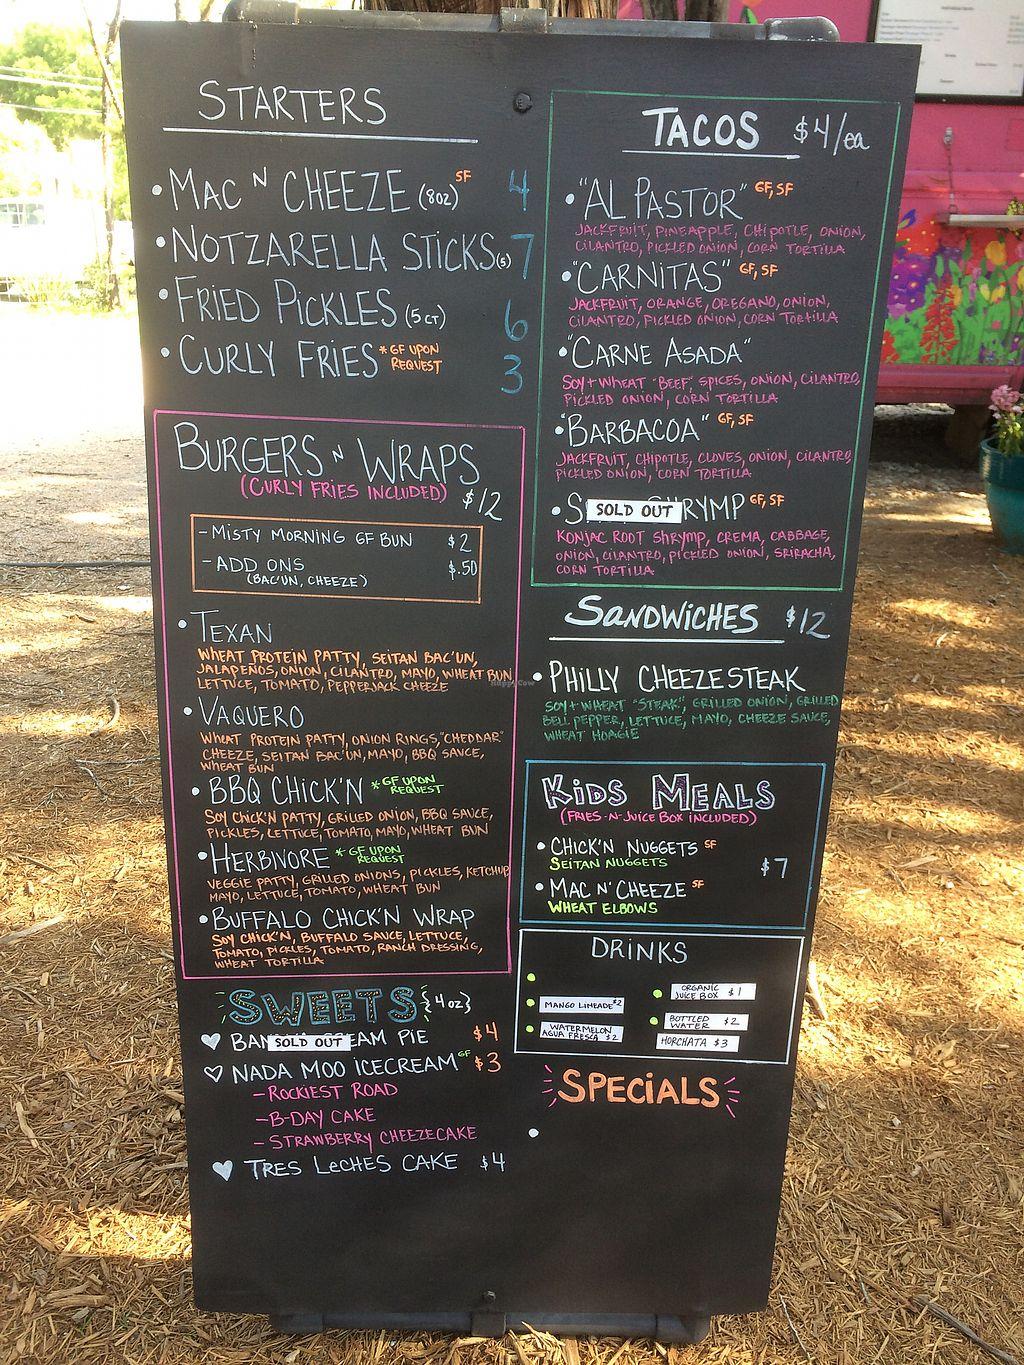 STARTERS
• MAC N CHEEZE (8oz) SF 4
• NOTZARELLA STICKS (5) 7
• FRIED PICKLES (5 CT) 6
• CURLY FRIES *GF UPON REQUEST 3
BURGERS N WRAPS
(CURLY FRIES INCLUDED) $12
- MISTY MORNING GF BUN $2
- ADD ONS $.50
(BAC'UN, CHEEZE)
• TEXAN
WHEAT PROTEIN PATTY, SEITAN BAC'UN,
JALAPEÑOS, ONION, CILANTRO, MAYO, WHEAT BUN
LETTUCE, TOMATO, PEPPERJACK CHEEZE
• VAQUERO
WHEAT PROTEIN PATTY, ONION RINGS, "CHEDDAR"
CHEEZE, SEITAN BAC'UN, MAYO, BBQ SAUCE,
WHEAT BUN
• BBQ CHICK'N *GF UPON REQUEST
SOY CHICK'N PATTY, GRILLED ONION, BBQ SAUCE,
PICKLES, LETTUCE, TOMATO, MAYO, WHEAT BUN
• HERBIVORE *GF UPON REQUEST
VEGGIE PATTY, GRILLED ONIONS, PICKLES, KETCHUP
MAYO, LETTUCE, TOMATO, WHEAT BUN
• BUFFALO CHICK'N WRAP
SOY CHICK'N, BUFFALO SAUCE, LETTUCE,
TOMATO, PICKLES, TOMATO, RANCH DRESSING,
WHEAT TORTILLA
SWEETS {4 oz}
BAN SOLD OUT EAM PIE $4
NADA MOO ICECREAM GF $3
- ROCKIEST ROAD
- B-DAY CAKE
- STRAWBERRY CHEEZECAKE
TRES LECHES CAKE $4
TACOS $4/ea
• "AL PASTOR" GF, SF
JACKFRUIT, PINEAPPLE, CHIPOTLE, ONION,
CILANTRO, PICKLED ONION, CORN TORTILLA
• "CARNITAS" GF, SF
JACKFRUIT, ORANGE, OREGANO, ONION,
CILANTRO, PICKLED ONION, CORN TORTILLA
• "CARNE ASADA"
SOY + WHEAT "BEEF", SPICES, ONION, CILANTRO,
PICKLED ONION, CORN TORTILLA
• "BARBACOA" GF, SF
JACKFRUIT, CHIPOTLE, CLOVES, ONION, CILANTRO,
PICKLED ONION, CORN TORTILLA
• S SOLD OUT RYMP GF, SF
KONJAC ROOT SHRYMP, CREMA, CABBAGE,
ONION, CILANTRO, PICKLED ONION, SRIRACHA,
CORN TORTILLA
SANDWICHES $12
• PHILLY CHEEZESTEAK
SOY + WHEAT "STEAK", GRILLED ONION, GRILLED
BELL PEPPER, LETTUCE, MAYO, CHEEZE SAUCE,
WHEAT HOAGIE
KIDS MEALS
(FRIES-N-JUICE BOX INCLUDED)
• CHICK'N NUGGETS SF
SEITAN NUGGETS
$7
• MAC N' CHEEZE SF
WHEAT ELBOWS
DRINKS
MANGO LIMEADE $2
WATERMELON
AGUA FRESCA $2
ORGANIC
JUICE BOX $1
BOTTLED
WATER $2
HORCHATA $3
SPECIALS
HappyCow